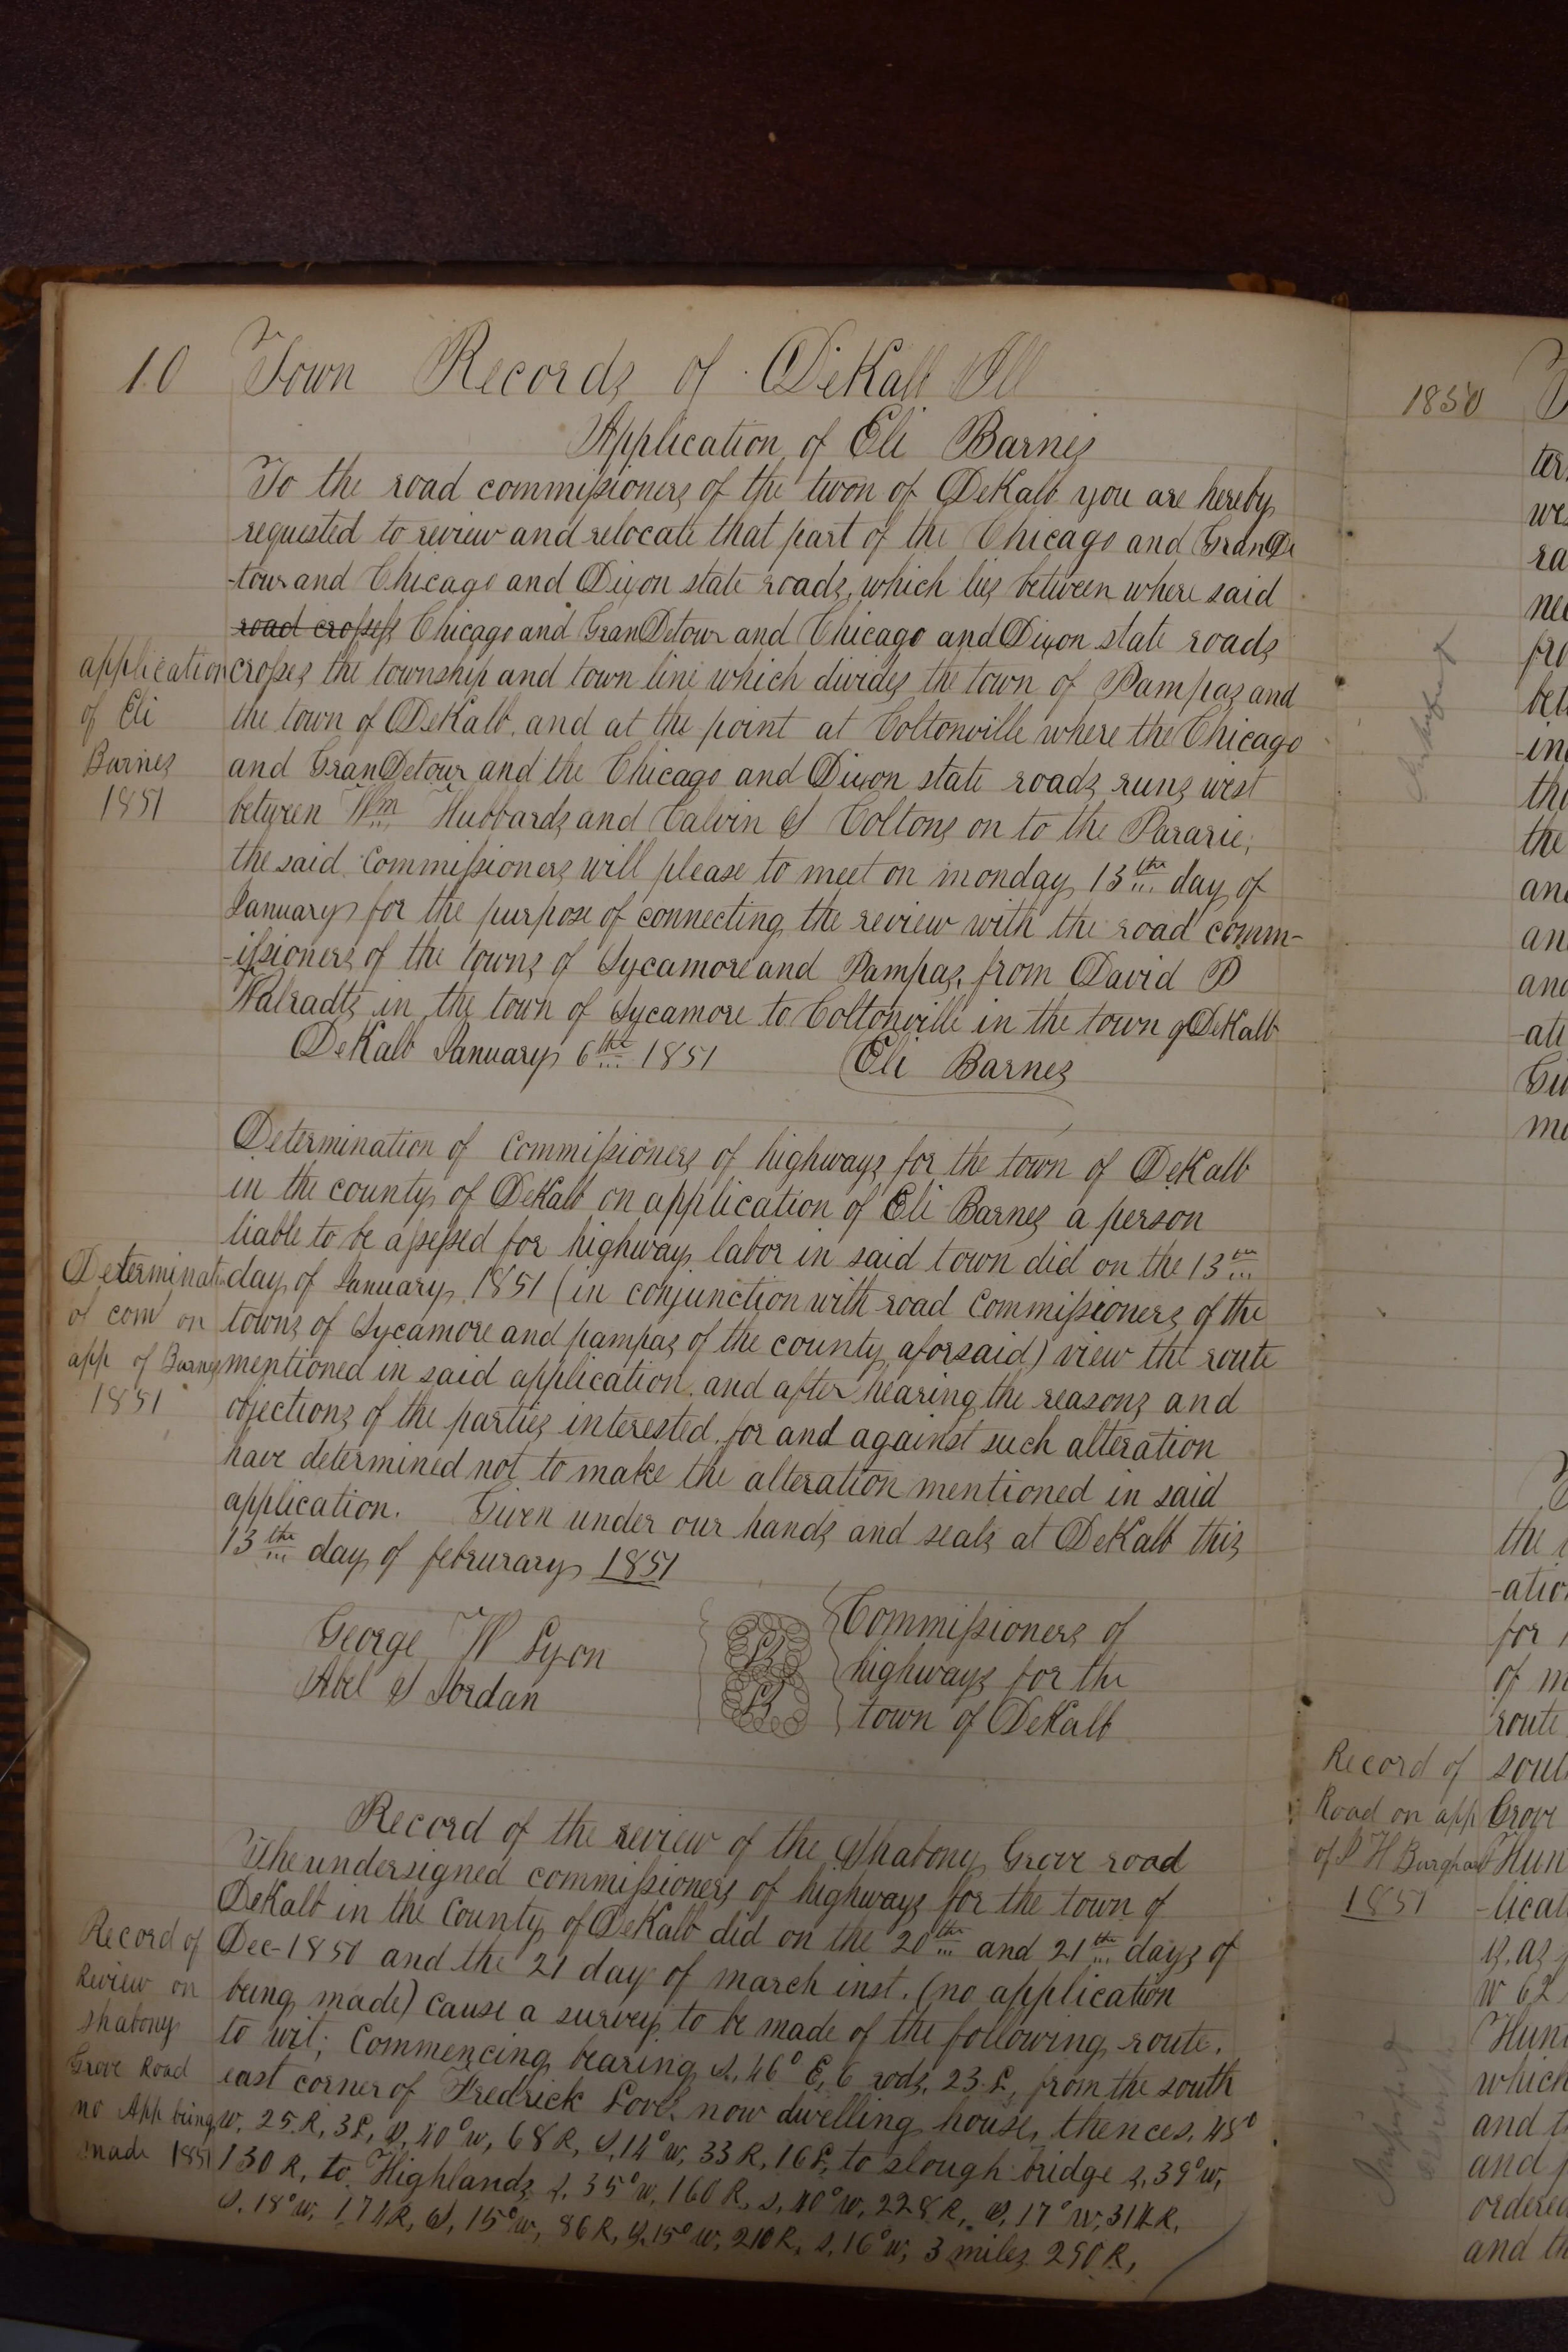 10 Town Records of DeKalb Ill
Application of Eli Barnes
To the road commissioners of the twon of DeKalb you are hereby
requested to review and relocate that part of the Chicago and GranDe
-tour and Chicago and Dixon state roads, which lies between where said
road crosses Chicago and GranDetour and Chicago and Dixon state roads
application
of Eli
Barnes
1851
crosses the township and town line which divides the town of Pampas and
the town of DeKalb, and at the point at Coltonville where the Chicago
and GranDetour and the Chicago and Dixon state roads runs west
between Wm Hubbards and Calvin S Coltons on to the Pararie,
the said Commissioners will please to meet on monday 13th day of
January for the purpose of connecting the review with the road comm-
-issioners of the towns of Sycamore and Pampas, from David P
Walradts in the town of Sycamore to Coltonville in the town of DeKalb
DeKalb January 6th 1851 Eli Barnes
Determination of Commissioners of highways for the town of DeKalb
in the county of DeKalb on application of Eli Barnes a person
liable to be assessed for highway labor in said town did on the 13th
Determinat
of com on
app of Barnes
1851
day of January 1851 (in conjunction with road Commissioners of the
towns of Sycamore and pampas of the county aforsaid) view the route
mentioned in said application, and after hearing the reasons and
objections of the parties interested, for and against such alteration
have determined not to make the alteration mentioned in said
application. Given under our hands and seals at DeKalb this
13th day of februrary 1851
George W Lyon
Abel S Jordan
LS
LS
Commissioners of
highways for the
town of DeKalb
Record of the review of the Shabony Grove road
The undersigned commissioners of highways for the town of
DeKalb in the County of DeKalb did on the 20th and 21th days of
Record of
Review on
shabony
Grove Road
no App being
made 1851
Dec-1850 and the 21 day of march inst. (no application
being made) cause a survey to be made of the following route.
to wit; Commencing bearing S, 46° E, 6 rods, 23 L, from the south
east corner of Fredrick Loves now dwelling house, thence s, 45°
w, 25 R, 3 L, S, 40° w, 68 R, S, 14° w, 33 R, 16 L, to slough bridge s, 39° w,
130 R, to Highlands s, 35° w, 160 R, s, 40° w, 228 R, S, 17° W, 314 R,
S, 18° w, 174 R, S, 15° w, 86 R, S, 15° w, 210 R, s, 16° w, 3 miles 250 R,
1850
Record of
Road on app
of P H Burghart
1851
the
-ation
for
of m
route
south
Grove
Hun
-lical
w 62
Hun
which
and t
and
ordered
and th